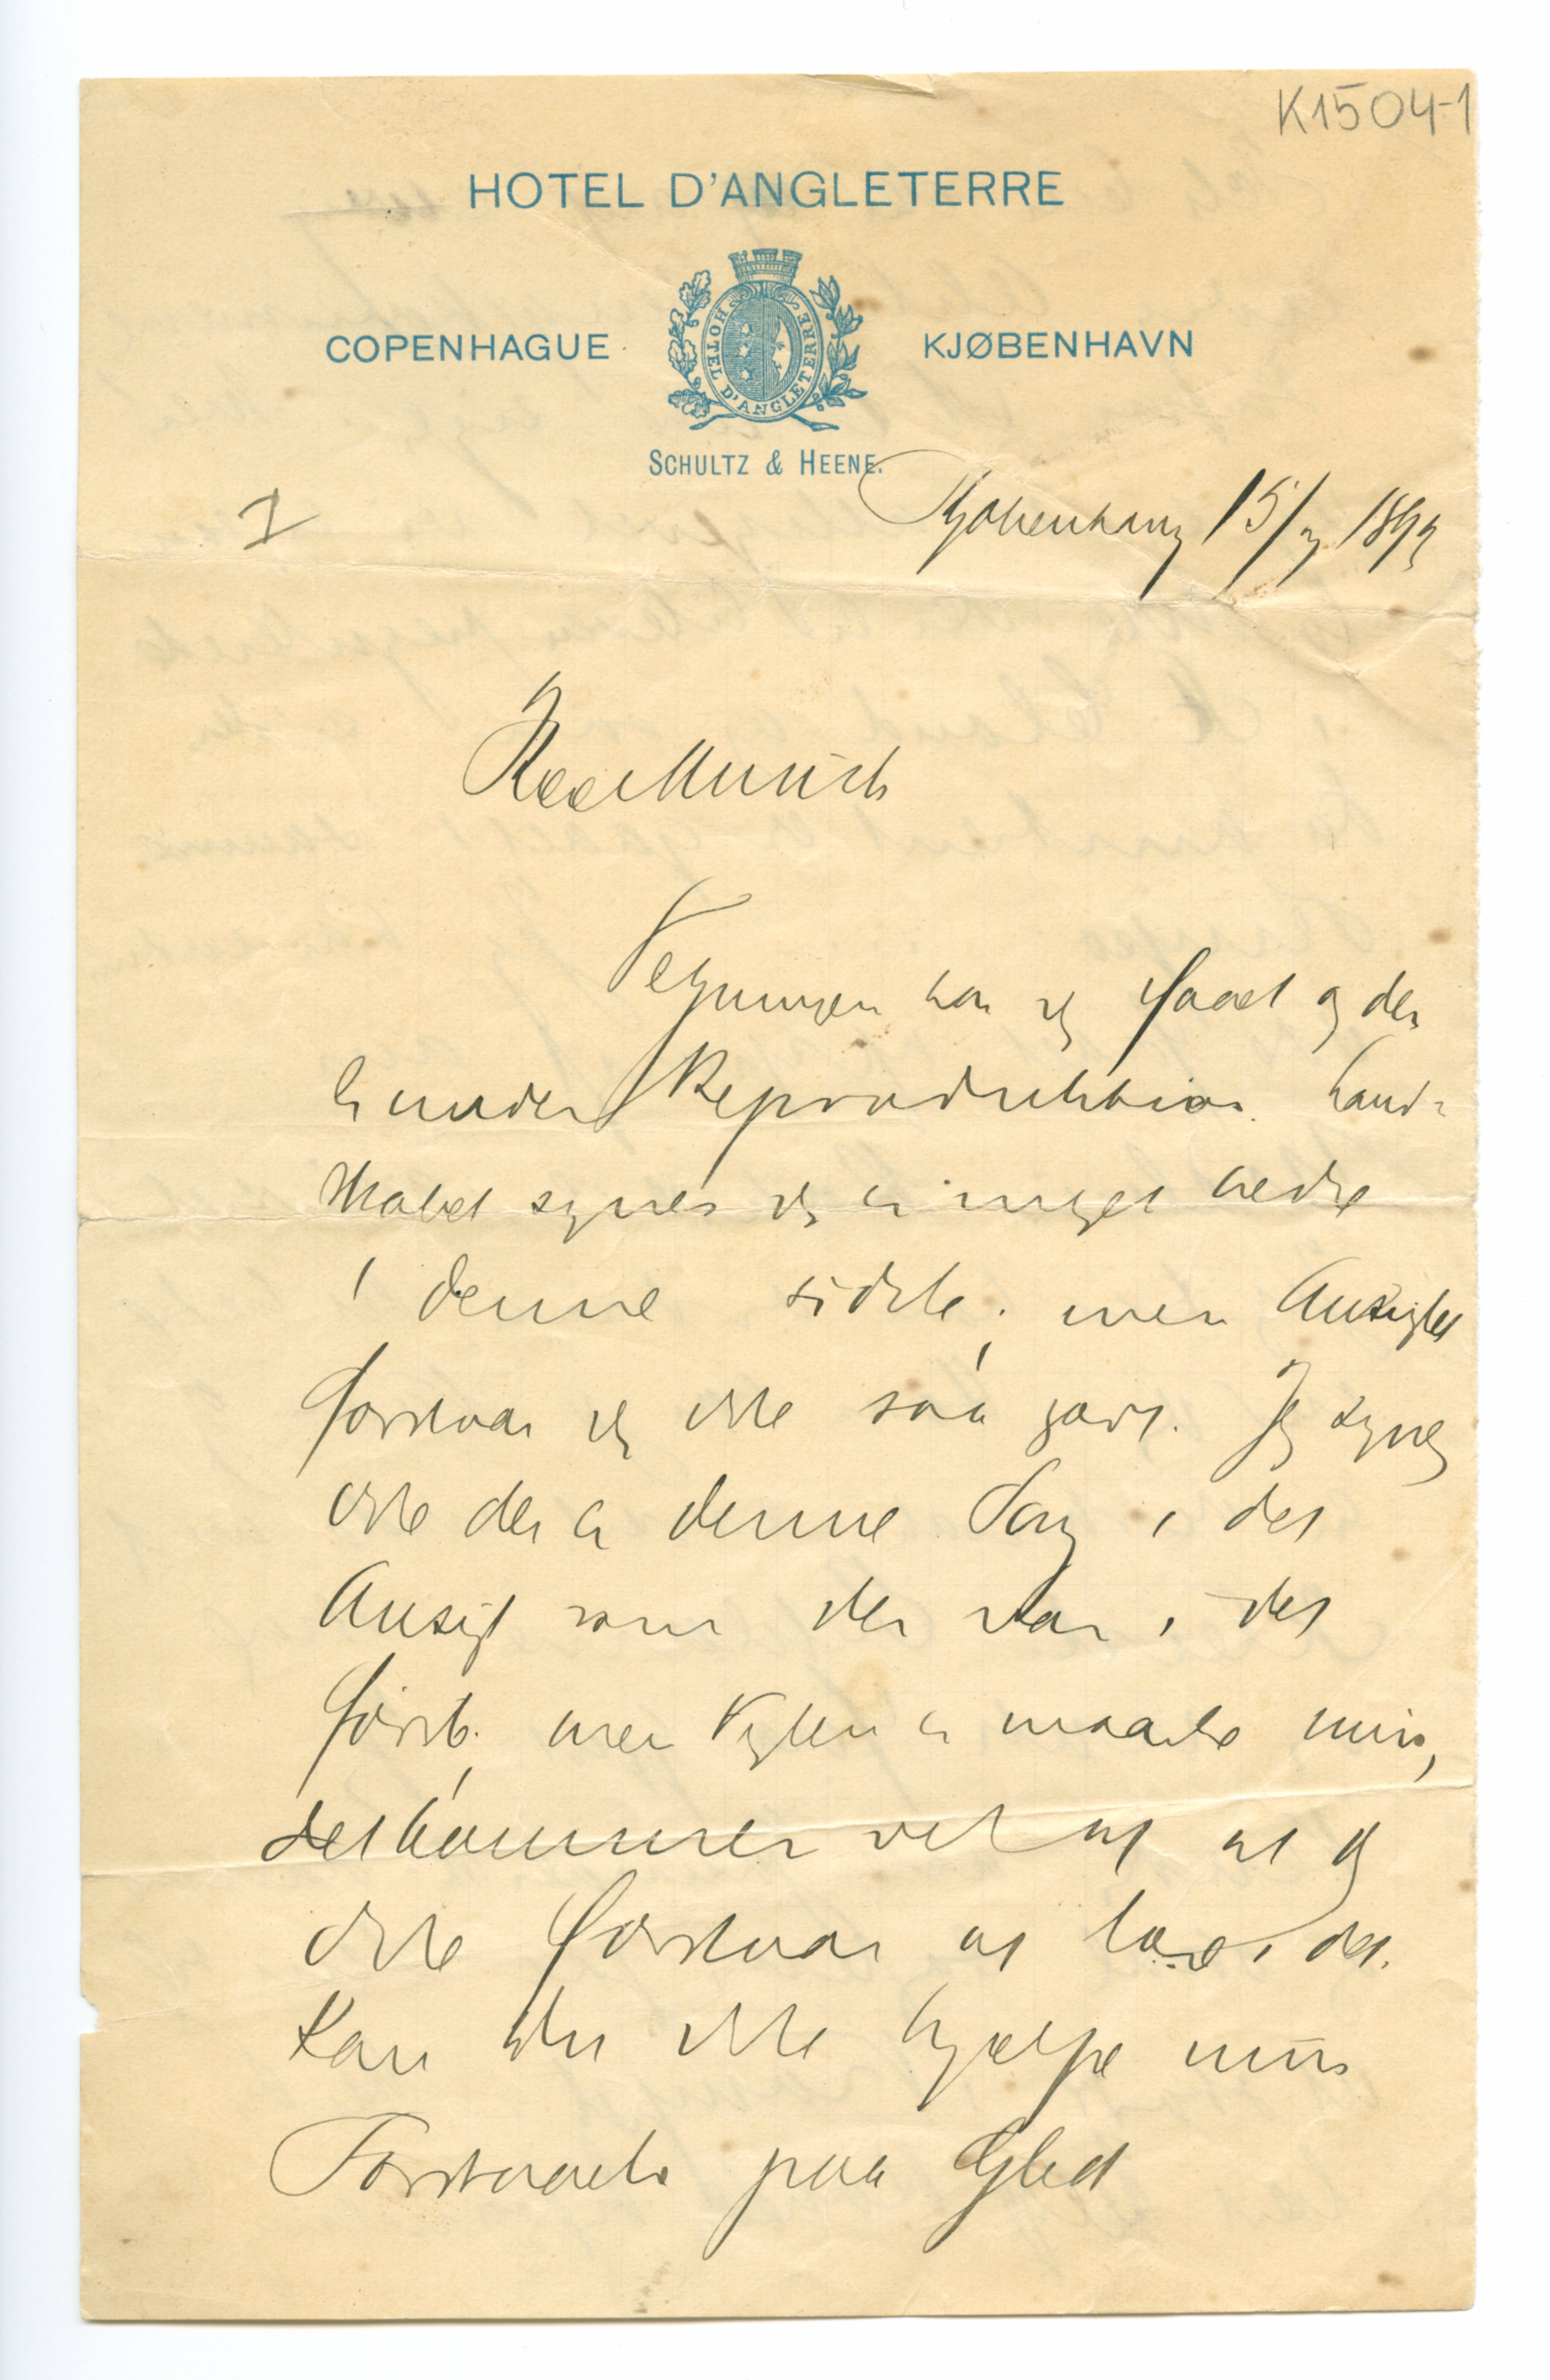 K1504-1
HOTEL D'ANGLETERRE
COPENHAGUE
HOTEL D'ANGLETERRE
KJØBENHAVN
SCHULTZ & HEENE.
1
Kjøbenhavn 15/3 1893
Kære Munch
Tegningen har jeg faaet og den
Reproduktion. Land-
skabet synes jeg er meget bedre
i denne sidste; men Ansigtet
forstaar jeg ikke saa godt. Jeg synes
ikke der er denne Sorg i det
Ansigt som der var i det
første; men Fejlen er maaske min,
det kommer vel af at jeg
ikke forstaar at læse i det.
Kan du ikke hjælpe min
Forstaaelse paa Gled